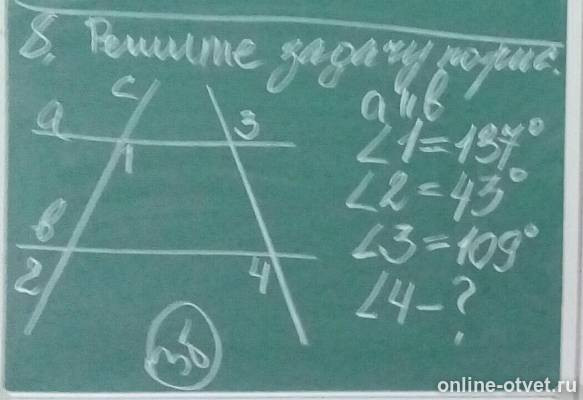 8. Решите задачу
c
a 3
1
в
2 4
3б
a || в
∠1 = 137°
∠2 = 43°
∠3 = 109°
∠4 - ?
online-otvet.ru